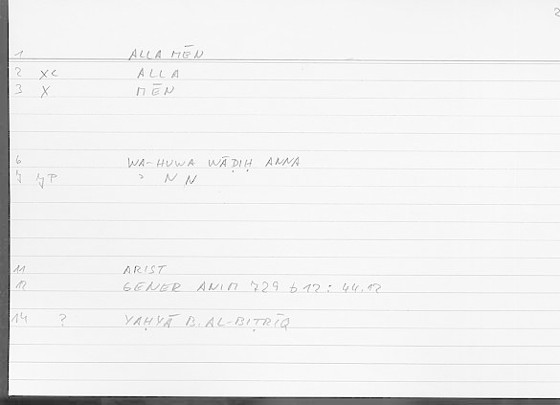 2
1 ALLA MĒN
2 XC ALLA
3 X MĒN
6 WA-HUWA WĀḌIḤ ANNA
7 N N
11 ARIST
12 GENER ANIM 729 b 12 : 44.12
14 ? YAḤYĀ B. AL-BIṬRĪQ